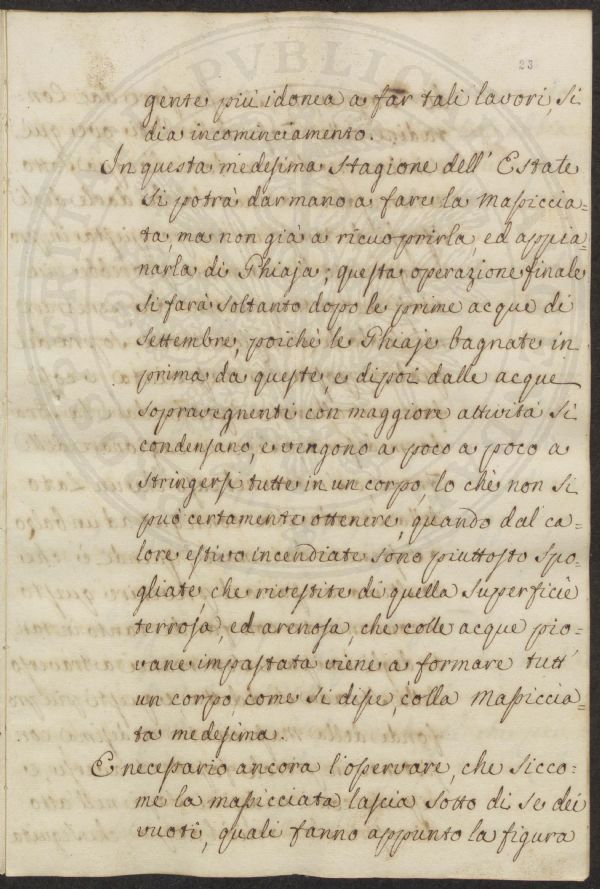 23
gente più idonea a far tali lavori, si
dia incominciamento.
In questa medesima stagione dell' Estate
si potrà dar mano a fare la Massiccia=
ta, ma non già a ricuoprirla, ed appia=
narla di Ghiaja; questa operazione finale
si farà soltanto dopo le prime acque di
Settembre, poichè le Ghiaje bagnate in
prima da queste, e di poi dalle acque
sopravegnenti con maggiore attività si
condensano, e vengono a poco a poco a
stringersi tutte in un corpo, lo chè non si
può certamente ottenere, quando dal ca=
lore estivo incendiate sono piuttosto spo=
gliate, che rivestite di quella superficie
terrosa, ed arenosa, che colle acque pio=
vane impastata viene a formare tutt'
un corpo, come si disse, colla Massiccia=
ta medesima.
E necessario ancora l'osservare, che sicco=
me la massicciata lascia sotto di se dei
vuoti, quali fanno appunto la figura